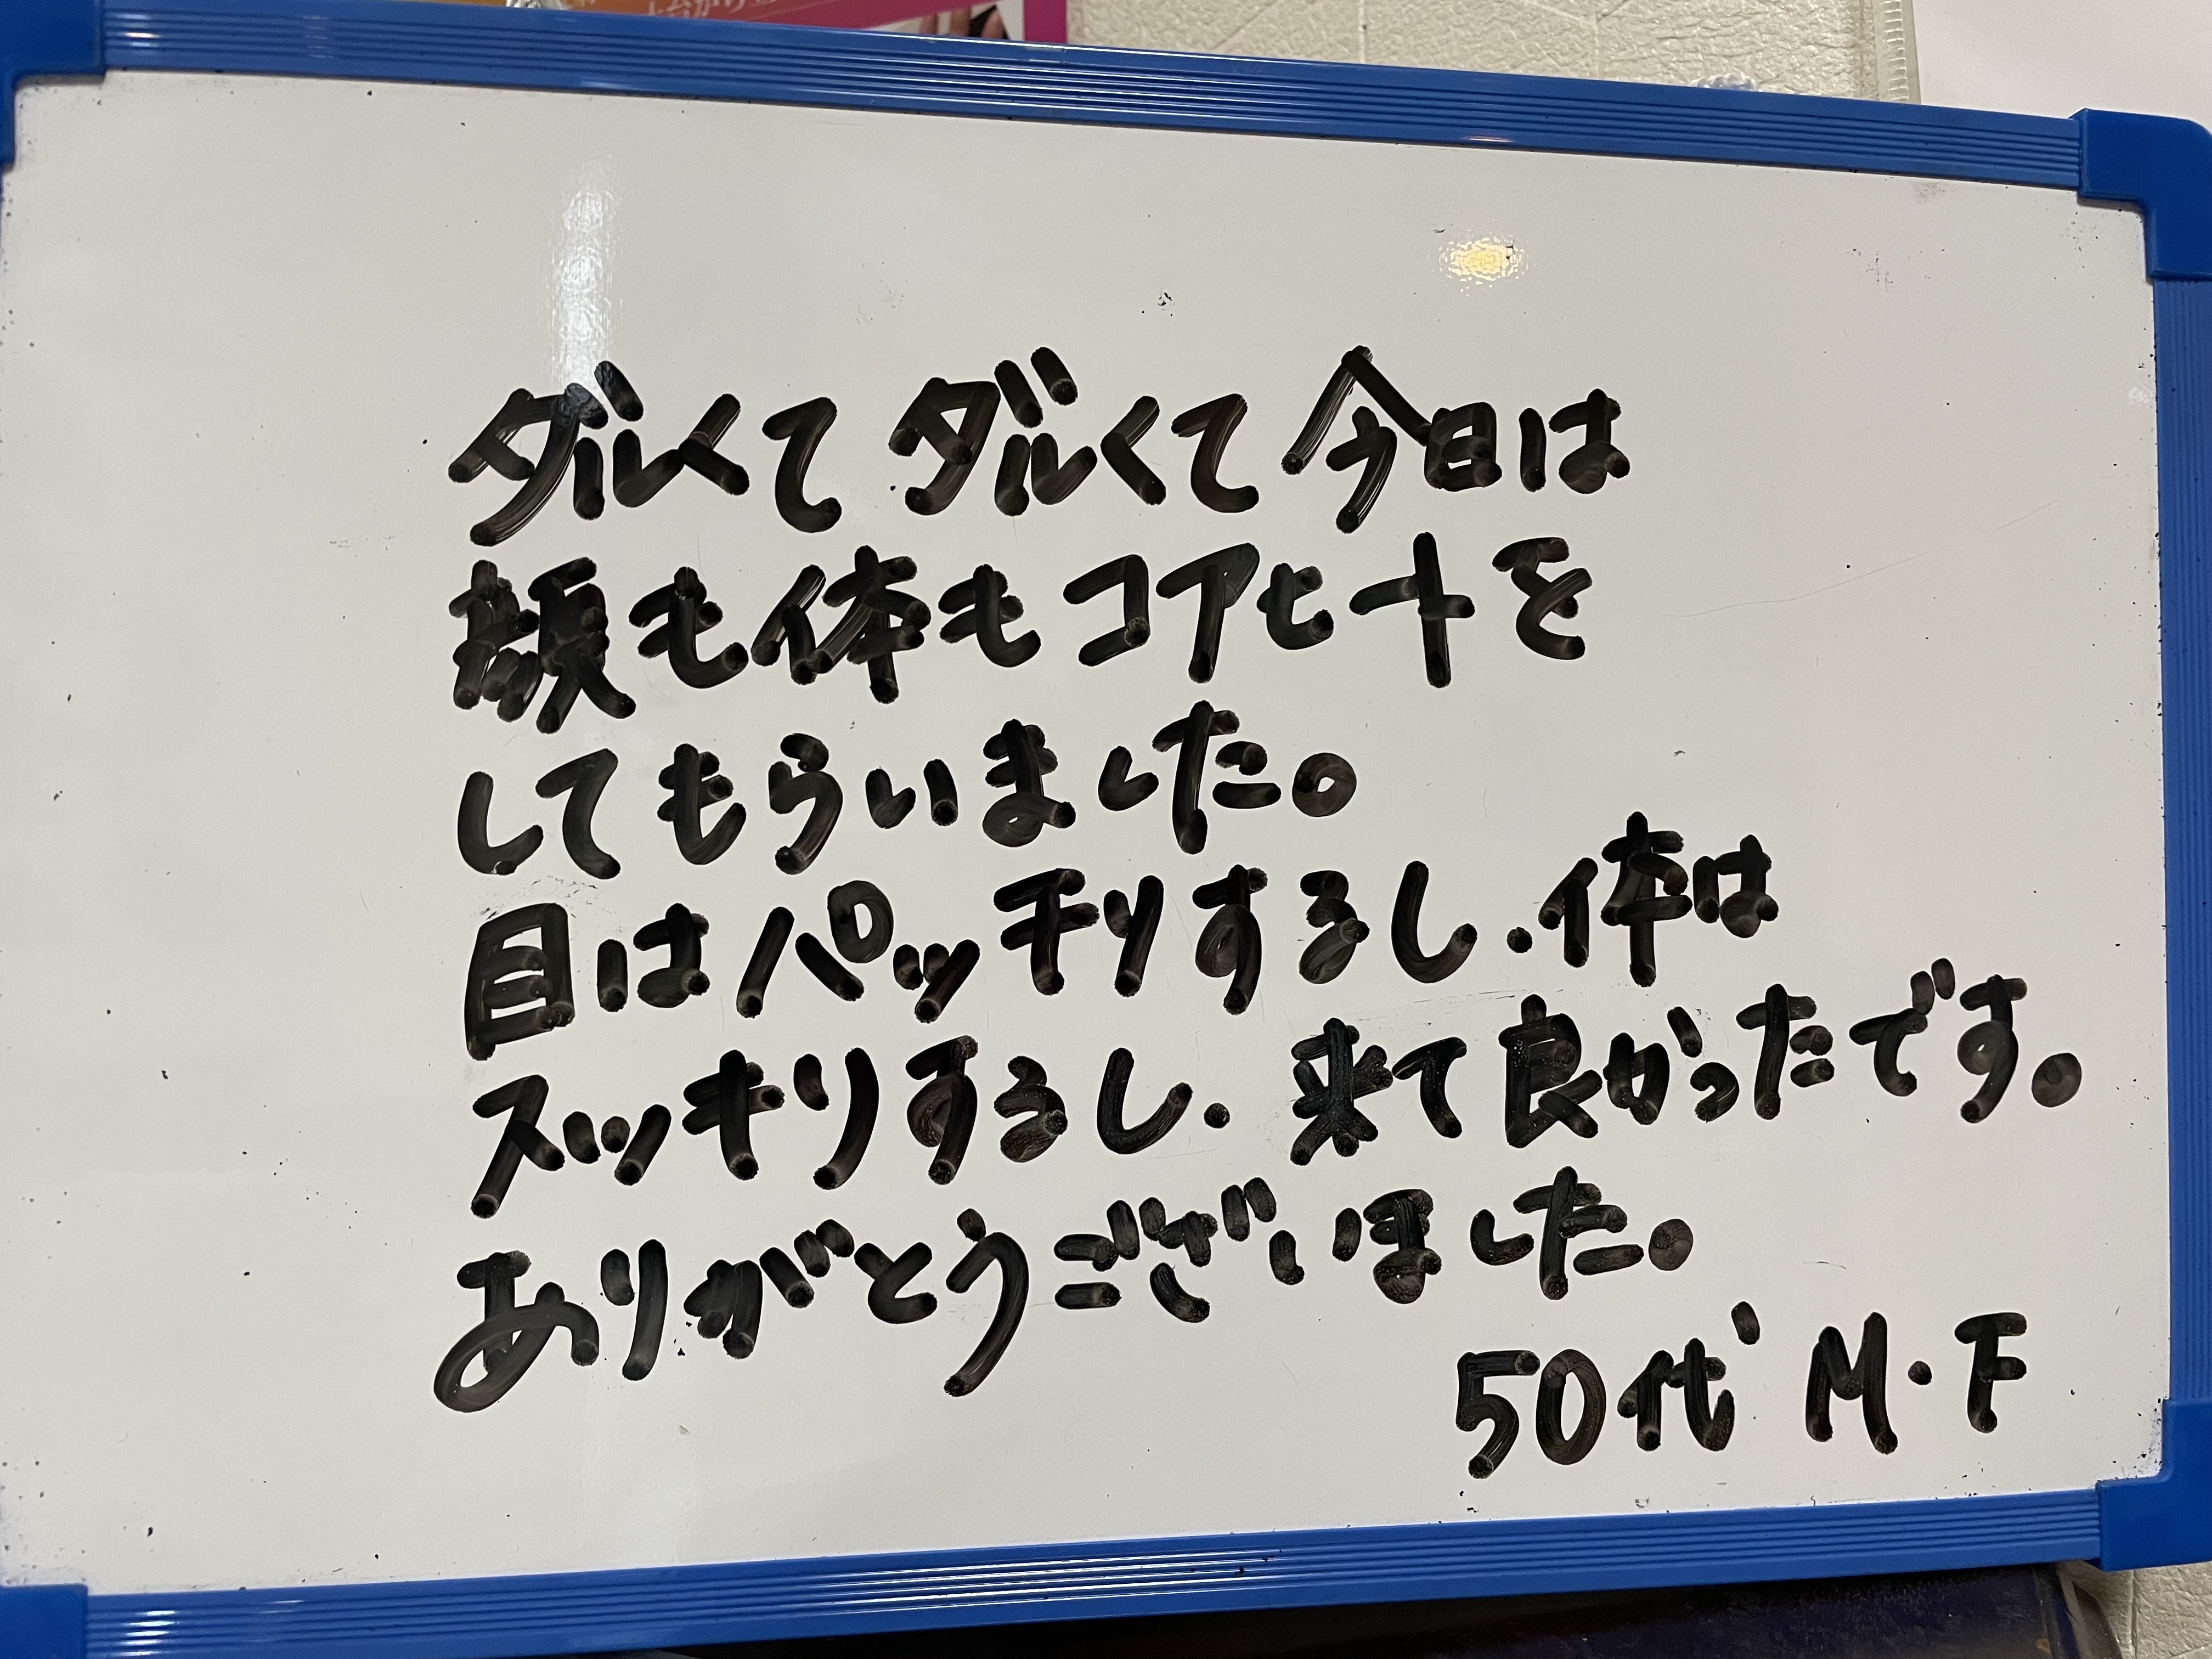 ダルくて ダルくて 今日は
顔も体もコアヒートを
してもらいました。
目はパッチリするし.体は
スッキリするし. 来て良かったです。
ありがとうございました。
50代 M・F